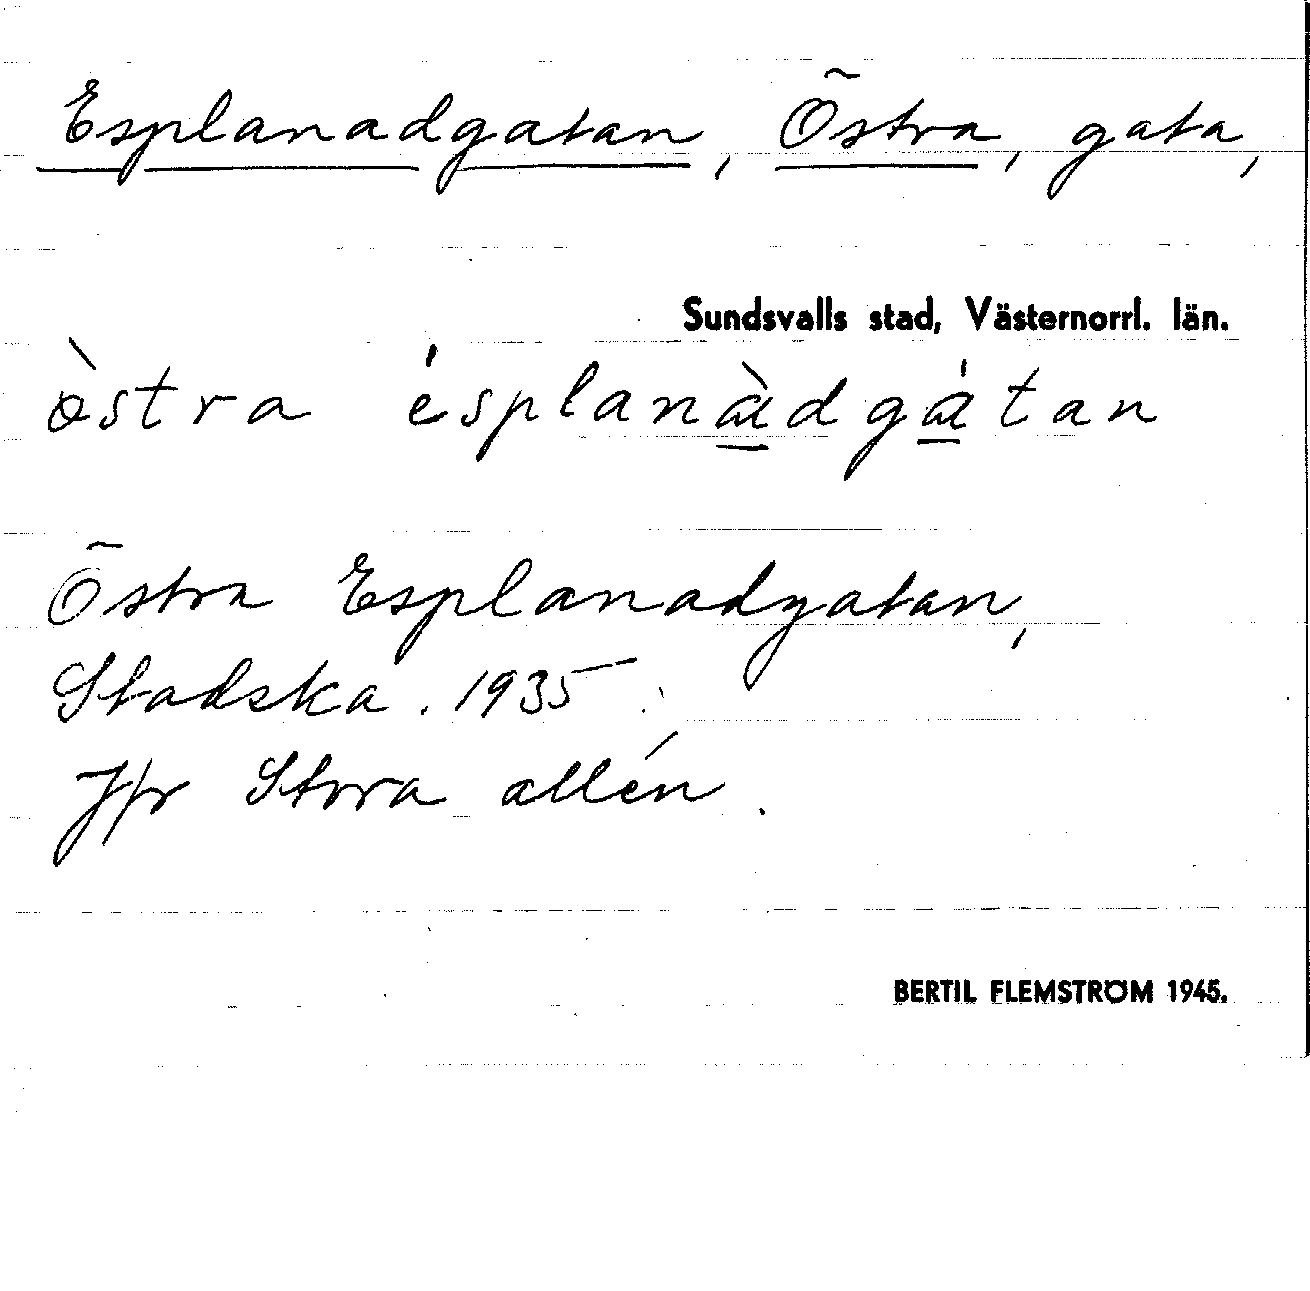 Esplanadgatan, Östra, gata,
Sundsvalls stad, Västernorrl. län.
ɵ̀stra ésplanɑ̀dgɑ́tan
Östra Esplanadgatan,
Stadska. 1935
Jfr Stora allén.
BERTIL FLEMSTRÖM 1945.